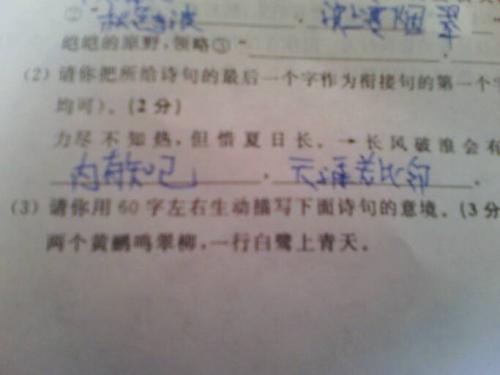 ②"秋色连波,波上寒烟翠
的原野,领略③"
(2) 请你把所给诗句的最后一个字作为衔接句的第一个字
均可)。(2 分)
力尽不知热,但惜夏日长。→ 长风破浪会有
内有知己,天涯若比邻.
(3) 请你用 60 字左右生动描写下面诗句的意境。(3 分
两个黄鹂鸣翠柳,一行白鹭上青天。